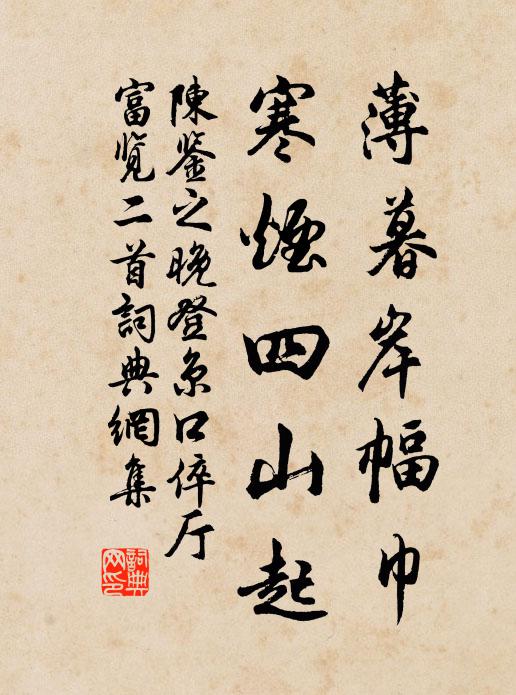 薄暮岸幅巾
寒煙四山起
陳鑒之晚登京口倅厅
富览二首詞典網集
詞典网印